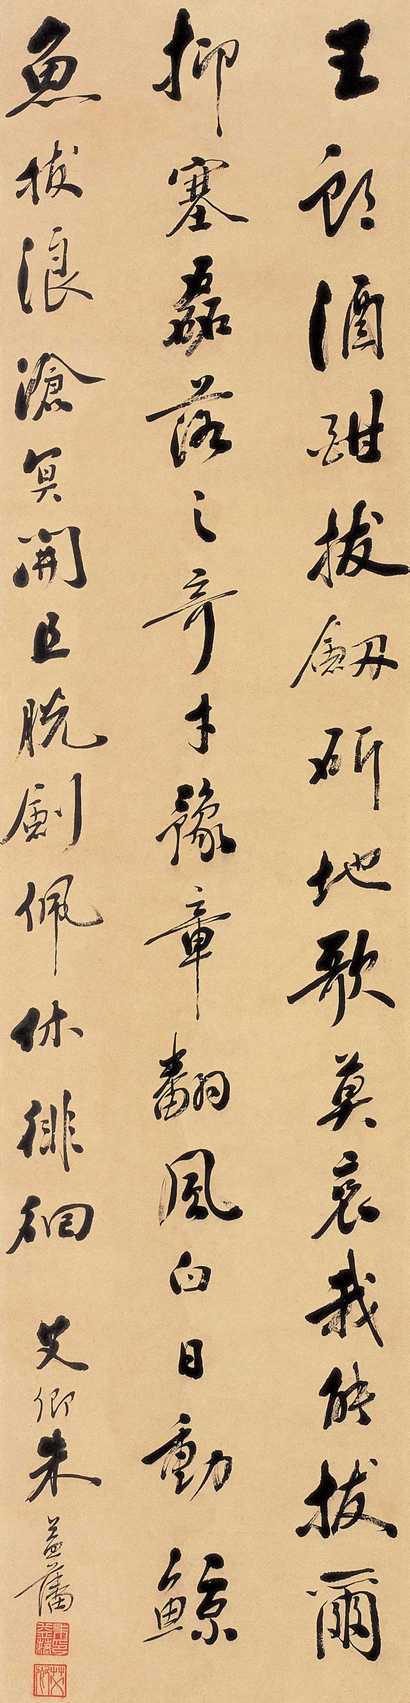 王郎酒酣拔劔斫地歌莫哀我能拔爾
抑塞磊落之奇才豫章翻風白日動鯨
魚拔浪滄冥開且脫劍佩休徘徊
艾卿朱益藩